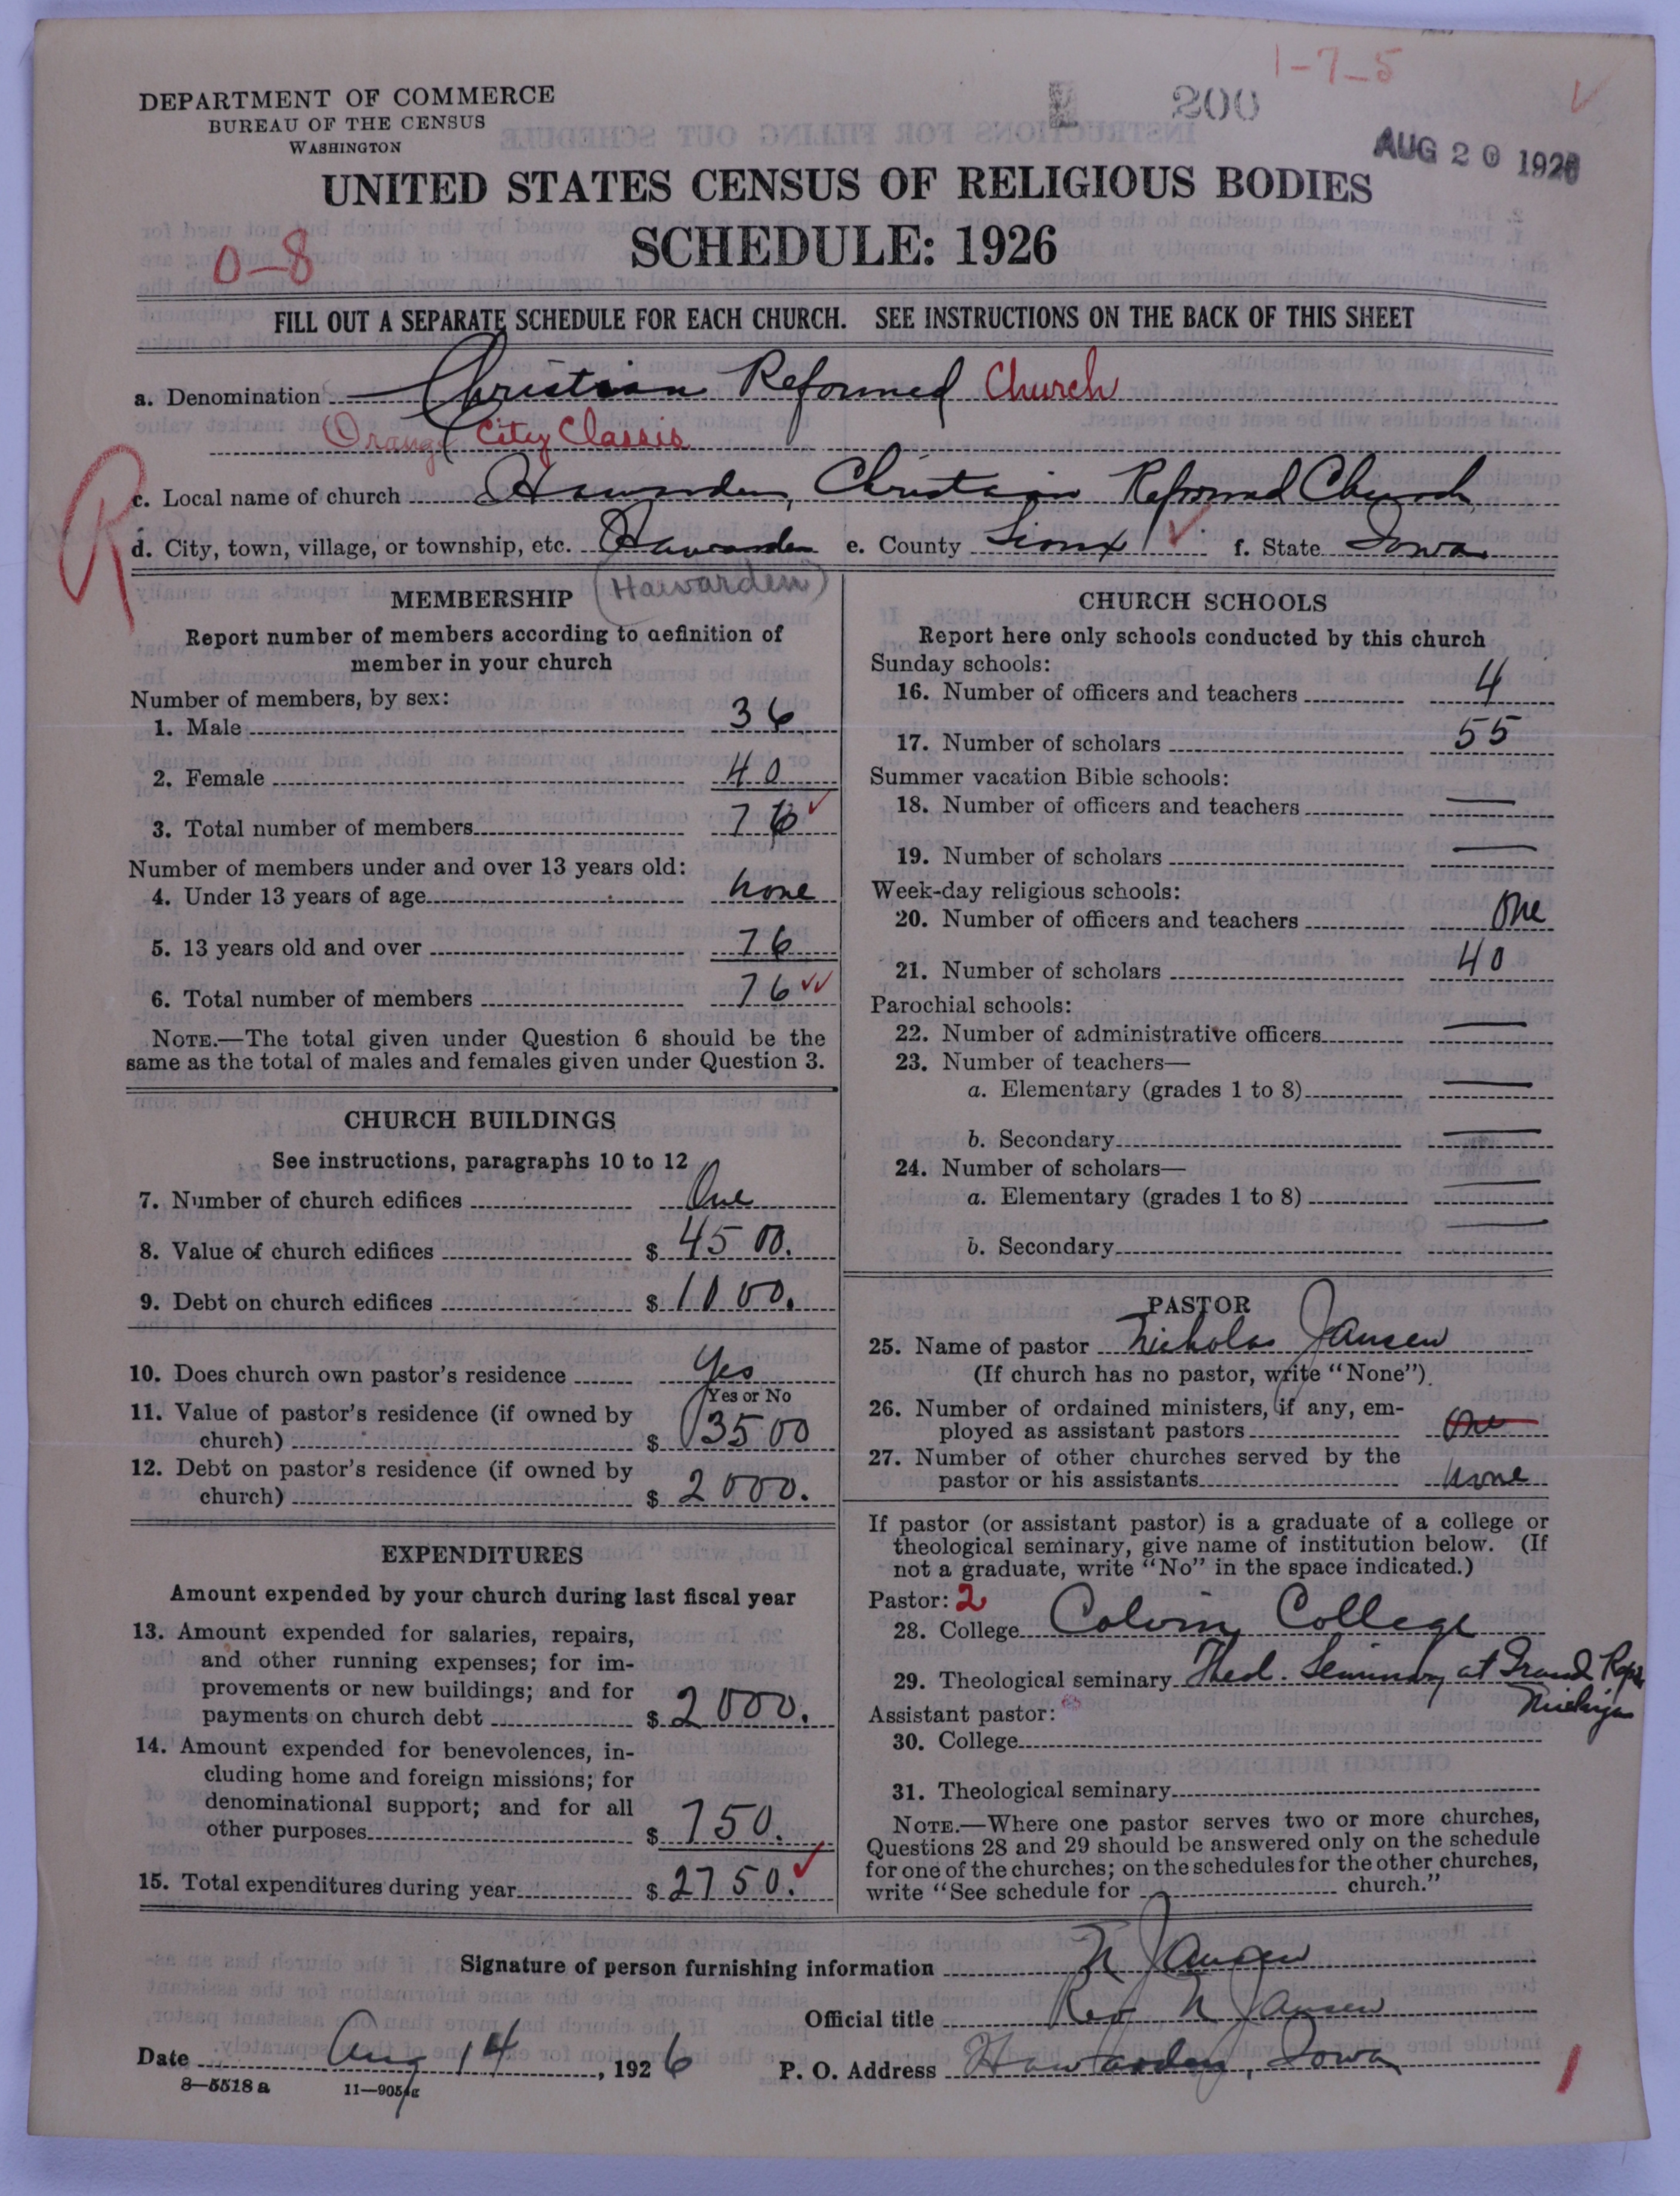 1-7-5
DEPARTMENT OF COMMERCE
BUREAU OF THE CENSUS
WASHINGTON
200
AUG 20 1926
UNITED STATES CENSUS OF RELIGIOUS BODIES
SCHEDULE: 1926
0-8
FILL OUT A SEPARATE SCHEDULE FOR EACH CHURCH. SEE INSTRUCTIONS ON THE BACK OF THIS SHEET
a. Denomination Christian Reformed Church
Orange City Classis
R
c. Local name of church Hawarden, Christian Reformed Church
d. City, town, village, or township, etc. Hawarden e. County Sioux f. State Iowa
(Hawarden)
MEMBERSHIP
Report number of members according to definition of
member in your church
Number of members, by sex:
1. Male 36
2. Female 40
3. Total number of members 76
Number of members under and over 13 years old:
4. Under 13 years of age none
5. 13 years old and over 76
6. Total number of members 76
NOTE.—The total given under Question 6 should be the
same as the total of males and females given under Question 3.
CHURCH BUILDINGS
See instructions, paragraphs 10 to 12
7. Number of church edifices One
8. Value of church edifices $ 4500.
9. Debt on church edifices $ 1000.
10. Does church own pastor's residence Yes
Yes or No
11. Value of pastor's residence (if owned by
church) $ 3500
12. Debt on pastor's residence (if owned by
church) $ 2000.
EXPENDITURES
Amount expended by your church during last fiscal year
13. Amount expended for salaries, repairs,
and other running expenses; for im-
provements or new buildings; and for
payments on church debt $ 2000.
14. Amount expended for benevolences, in-
cluding home and foreign missions; for
denominational support; and for all
other purposes $ 750.
15. Total expenditures during year $ 2750.
CHURCH SCHOOLS
Report here only schools conducted by this church
Sunday schools:
16. Number of officers and teachers 4
17. Number of scholars 55
Summer vacation Bible schools:
18. Number of officers and teachers —
19. Number of scholars —
Week-day religious schools:
20. Number of officers and teachers One
21. Number of scholars 40
Parochial schools:
22. Number of administrative officers —
23. Number of teachers—
a. Elementary (grades 1 to 8) —
b. Secondary —
24. Number of scholars—
a. Elementary (grades 1 to 8) —
b. Secondary —
PASTOR
25. Name of pastor Nicholas Jansen
(If church has no pastor, write "None").
26. Number of ordained ministers, if any, em-
ployed as assistant pastors One
27. Number of other churches served by the
pastor or his assistants none
If pastor (or assistant pastor) is a graduate of a college or
theological seminary, give name of institution below. (If
not a graduate, write "No" in the space indicated.)
Pastor: 2
28. College Colvin College
29. Theological seminary Theol. Seminary at Grand Rapi
Michigan
Assistant pastor:
30. College
31. Theological seminary
NOTE.—Where one pastor serves two or more churches,
Questions 28 and 29 should be answered only on the schedule
for one of the churches; on the schedules for the other churches,
write "See schedule for church."
Signature of person furnishing information N Jansen
Official title Rev N Jansen
Date Aug 14, 1926 P. O. Address Hawarden, Iowa
8-5518 a 11-9054a
1